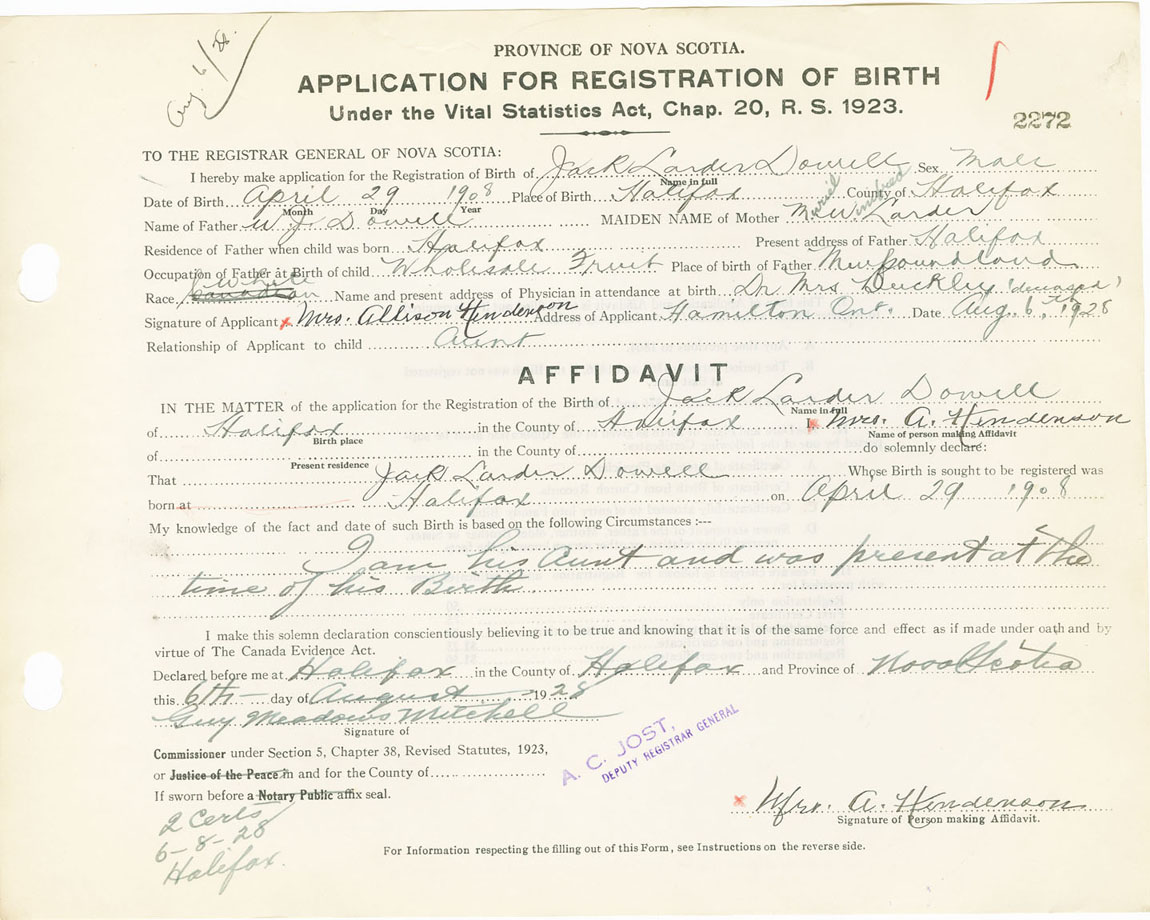 Aug. 6/28.
PROVINCE OF NOVA SCOTIA.
APPLICATION FOR REGISTRATION OF BIRTH
Under the Vital Statistics Act, Chap. 20, R. S. 1923.
2272
TO THE REGISTRAR GENERAL OF NOVA SCOTIA:
I hereby make application for the Registration of Birth of Jack Larder Dowell Sex Male
Name in full
Date of Birth April 29 1908 Place of Birth Halifax County of Halifax
Month Day Year
Muriel Winifred
Name of Father W. J. Dowell MAIDEN NAME of Mother M. W. Larder
Residence of Father when child was born Halifax Present address of Father Halifax
Occupation of Father at Birth of child Wholesale Fruit Place of birth of Father Newfoundland
White
Race, Canadian Name and present address of Physician in attendance at birth Dr Mrs. Buckley (deceased)
Signature of Applicant x Mrs. Allison Henderson Address of Applicant Hamilton Ont. Date Aug. 6th, 1928
Relationship of Applicant to child Aunt
AFFIDAVIT
IN THE MATTER of the application for the Registration of the Birth of Jack Larder Dowell
Name in full
of Halifax in the County of Halifax I, x Mrs. A. Henderson
Birth place Name of person making Affidavit
of in the County of do solemnly declare:
Present residence
That Jack Larder Dowell Whose Birth is sought to be registered was
born at Halifax on April 29 1908
My knowledge of the fact and date of such Birth is based on the following Circumstances :---
I am his Aunt and was present at the
time of his Birth.
I make this solemn declaration conscientiously believing it to be true and knowing that it is of the same force and effect as if made under oath and by
virtue of The Canada Evidence Act.
Declared before me at Halifax in the County of Halifax and Province of Nova Scotia
this 6th day of August 1928
Guy Meadows Mitchell
Signature of
Commissioner under Section 5, Chapter 38, Revised Statutes, 1923,
or Justice of the Peace in and for the County of
If sworn before a Notary Public affix seal.
A. C. JOST,
DEPUTY REGISTRAR GENERAL
x Mrs. A. Henderson
Signature of Person making Affidavit.
2 Certs
6-8-28
Halifax.
For Information respecting the filling out of this Form, see Instructions on the reverse side.